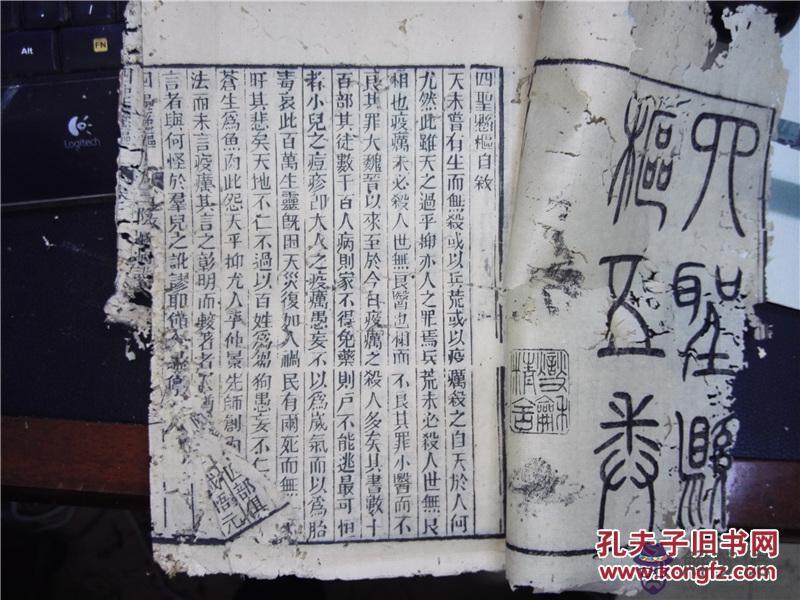 四聖懸
樞五卷
燮和
精舍
四聖懸樞自敘
天未嘗有生而無殺或以兵荒或以疫癘殺之自天於人何
尤然此雖天之過乎抑亦人之罪焉兵荒未必殺人世無良
相也疫癘未必殺人世無良醫也相而不良其罪小醫而不
良其罪大魏晉以來至於今日疫癘之殺人多矣其書數十
百部其徒數千百人病則家不得免藥則戶不能逃最可恨
者小兒之痘疹即大人之疫癘愚妄不以為歲氣而以為胎
毒哀此百萬生靈既困天災復加人禍民有兩死而無
吁其悲矣天地不仁不過以百姓為芻狗愚妄不仁
蒼生為魚肉此怨天乎抑尤人乎仲景先師創
法而未言疫癘其言之彰明而較著者
言者與何怪於羣兒之訛謬耶
部俱
悟元
Alt
FN
Logitech
孔夫子旧书网
www.kongfz.com